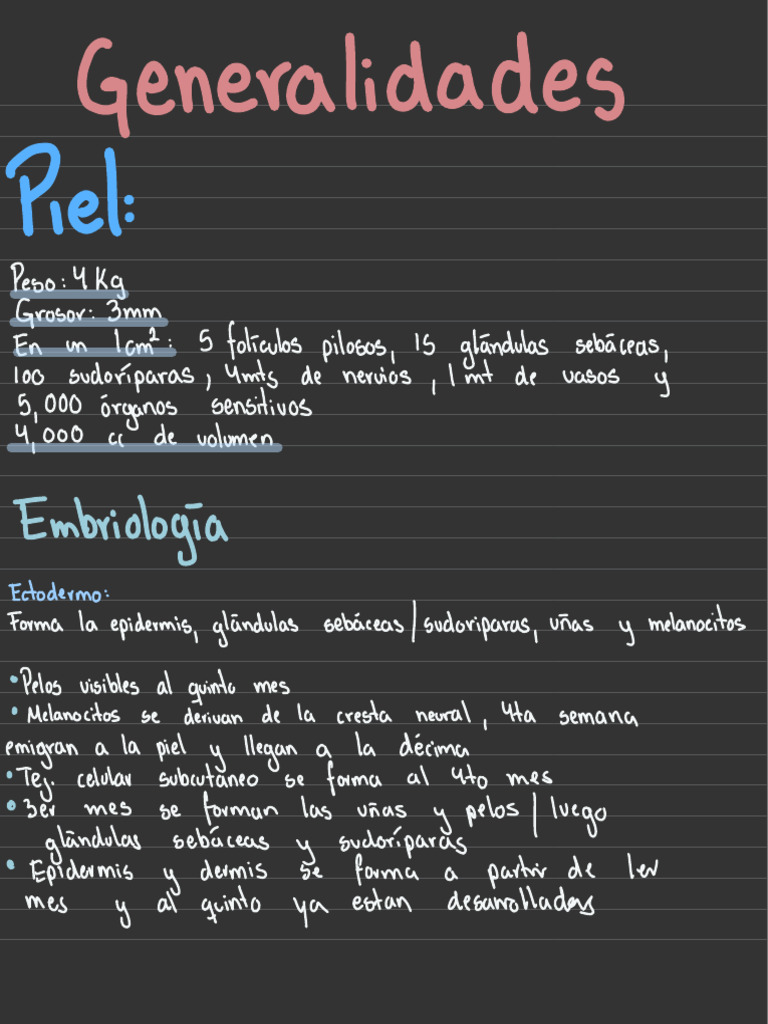 Generalidades
Piel:
Peso: 4 Kg
Grosor: 3mm
En un 1cm²: 5 folículos pilosos, 15 glándulas sebáceas,
100 sudoríparas, 4mts de nervios, 1 mt de vasos y
5,000 órganos sensitivos
4,000 cc de volumen
Embriología
Ectodermo:
Forma la epidermis, glándulas sebáceas/sudoriparas, uñas y melanocitos
•Pelos visibles al quinto mes
• Melanocitos se derivan de la cresta neural, 4ta semana
emigran a la piel y llegan a la décima
•Tej. celular subcutaneo se forma al 4to mes
• 3er mes se forman las uñas y pelos/luego
glándulas sebáceas y sudoríparas
• Epidermis y dermis se forma a partir de 1er
mes y al quinto ya estan desarrolladas